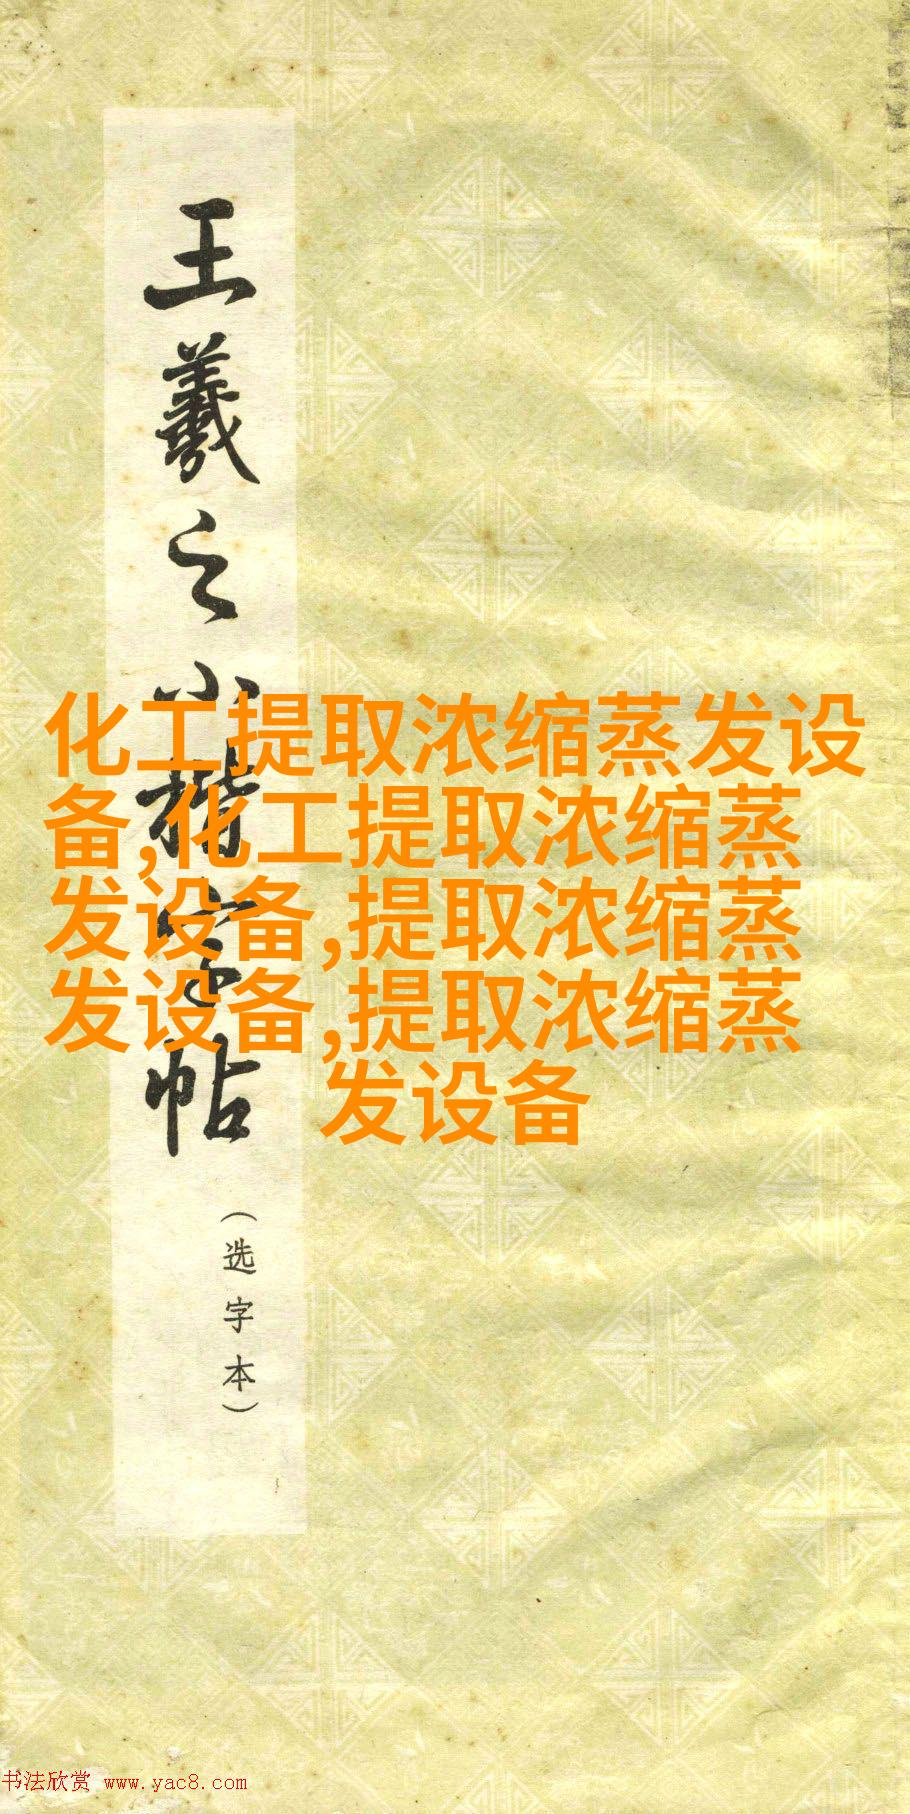 王羲之小楷字帖
（选字本）
化工提取浓缩蒸发设
备,化工提取浓缩蒸
发设备,提取浓缩蒸
发设备,提取浓缩蒸
发设备
书法欣赏 www.yac8.com